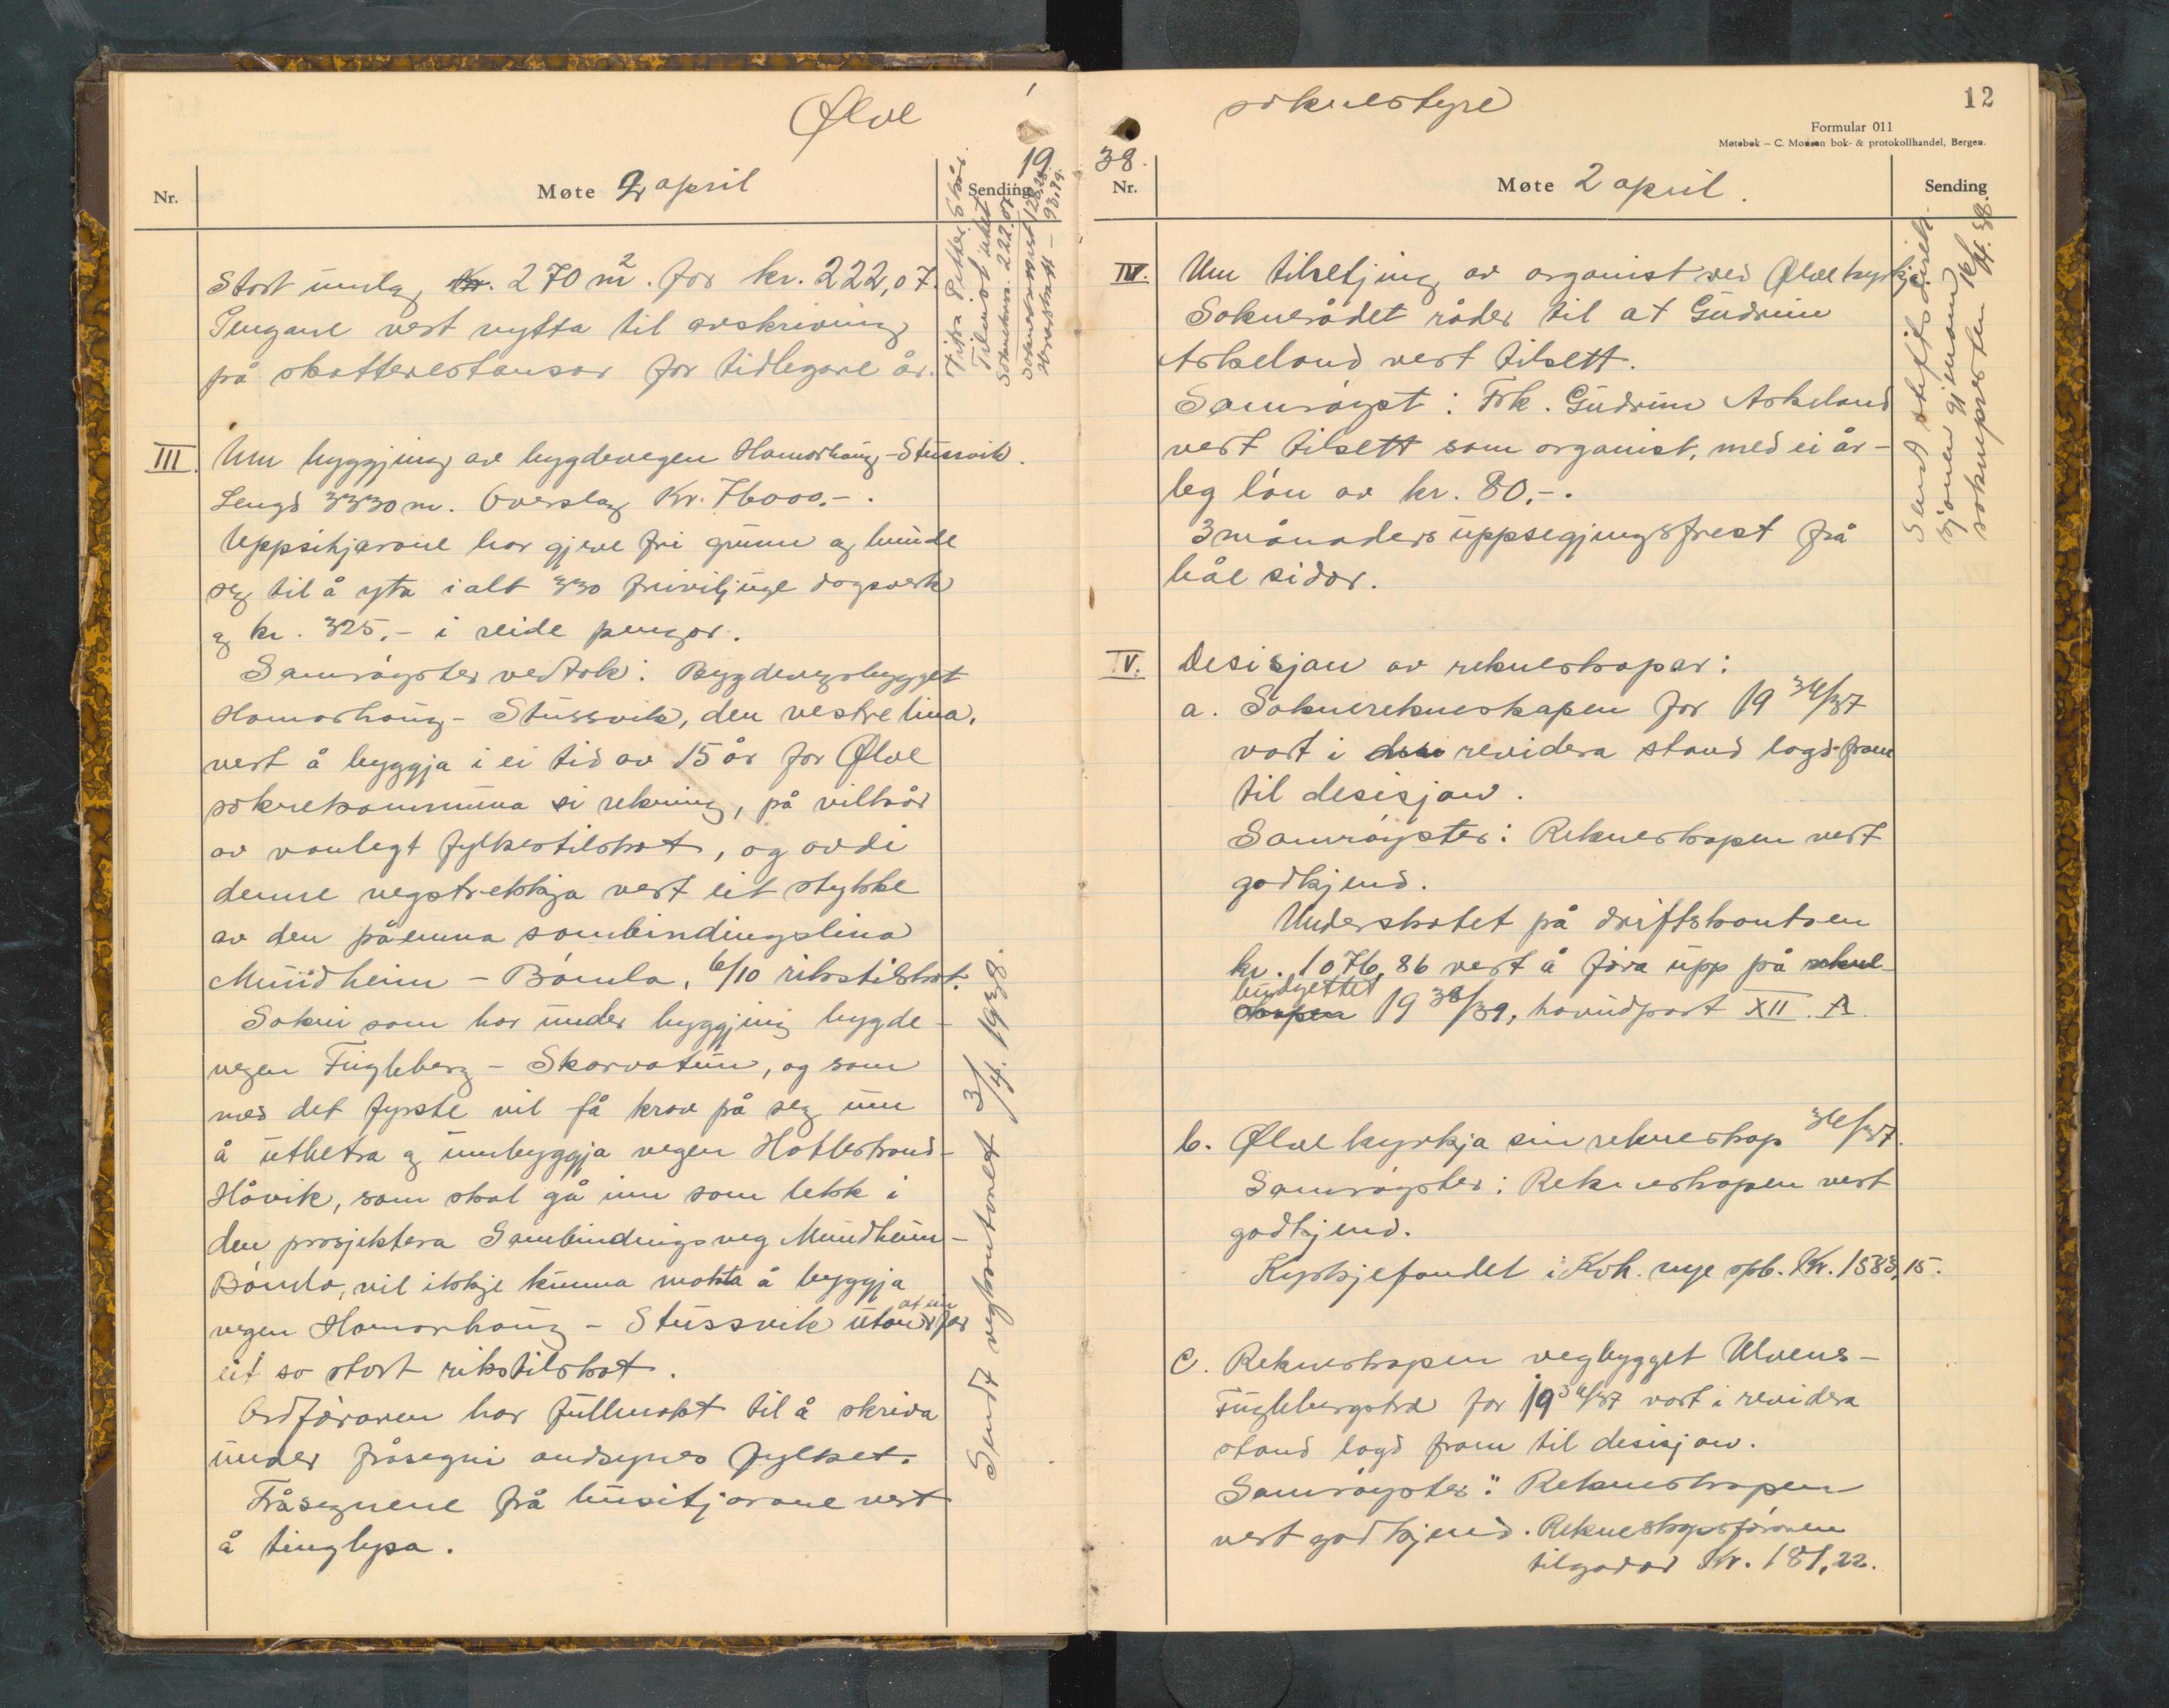 Ølve
19
Nr.
Møte 2 april
Sending
Stort umlag kr. 270 m². for kr. 222,07.
Pengane vert nytta til avskriving
på skatterestansar for tidlegare år.
III. Um byggjing av bygdevegen Hamarhaug-Stussvik.
Lengd 3330 m. Overslag Kr. 76000.-.
Uppsitjarane har gjeve fri grunn og bunde
seg til å yta i alt 330 friviljuge dagsverk
og kr. 325.- i reide pengar.
Samrøystes vedtok: Bygdevegsbygget
Hamarhaug - Stussvik, den vestre lina,
vert å byggja i ei tid av 15 år for Ølve
soknekommuna si rekning, på vilkår
av vanlegt fylkestilskot, og avdi
denne vegstrekkja vert eit stykke
av den påemna sambindingslina
Mundheim - Bømla, 6/10 rikstilskot.
Sokni som har under byggjing bygde-
vegen Fugleberg - Skarvatun, og som
med det fyrste vil få krav på seg um
å utbetra og umbyggja vegen Hatlestrand-
Håvik, som skal gå inn som lekk i
den prosjektera Sambindingsveg Mundheim-
Bømlo, vil ikkje kunna makta å byggja
vegen Hamarhaug - Stussvik utan at ein fær
eit so stort rikstilskot.
Ordføraren har fullmakt til å skriva
under fråsegni andsynes fylket.
Fråsegnene frå busitjarane vert
å tinglysa.
Tilvert
Soknekom. 222.07
93,79.
Sendt vegkontoret 3/4. 1938.
soknestyre
12
Formular 011
Møtebok – C. Monsen bok- & protokollhandel, Bergen.
38.
Nr.
Møte 2 april.
Sending
IV. Um tilsetjing av organist ved Ølve kyrkje
Soknerådet råder til at Gudrun
Askeland vert tilsett.
Samrøyst: Frk. Gudrun Askeland
vert tilsett som organist, med ei år-
leg løn av kr. 80.-.
3 månaders uppsegjingsfrest frå
båe sidor.
Sendt stiftsdirek-
sjonen gjenom
soknepresten 16/4. 38.
V. Desisjon av rekneskapar:
a. Soknerekneskapen for 19 36/37
vart i revidera stand lagd fram
til desisjon.
Samrøystes: Rekneskapen vert
godkjend.
Underskotet på driftskontoen
kr. 1076,86 vert å føra upp på rekne-
budgettet
skapen 19 38/39, hovudpost XII. A.
b. Ølve kyrkja sin rekneskap 36/37.
Samrøystes: Rekneskapen vert
godkjend.
Kyrkjefondet i Kvh. nye spb. Kr. 1583,15.
c. Rekneskapen vegbygget Ulvens-
Fuglebergstrd for 1936/37 vart i revidera
stand lagd fram til desisjon.
Samrøystes: Rekneskapen
vert godkjend. Rekneskapsføraren
tilgodar Kr. 181,22.